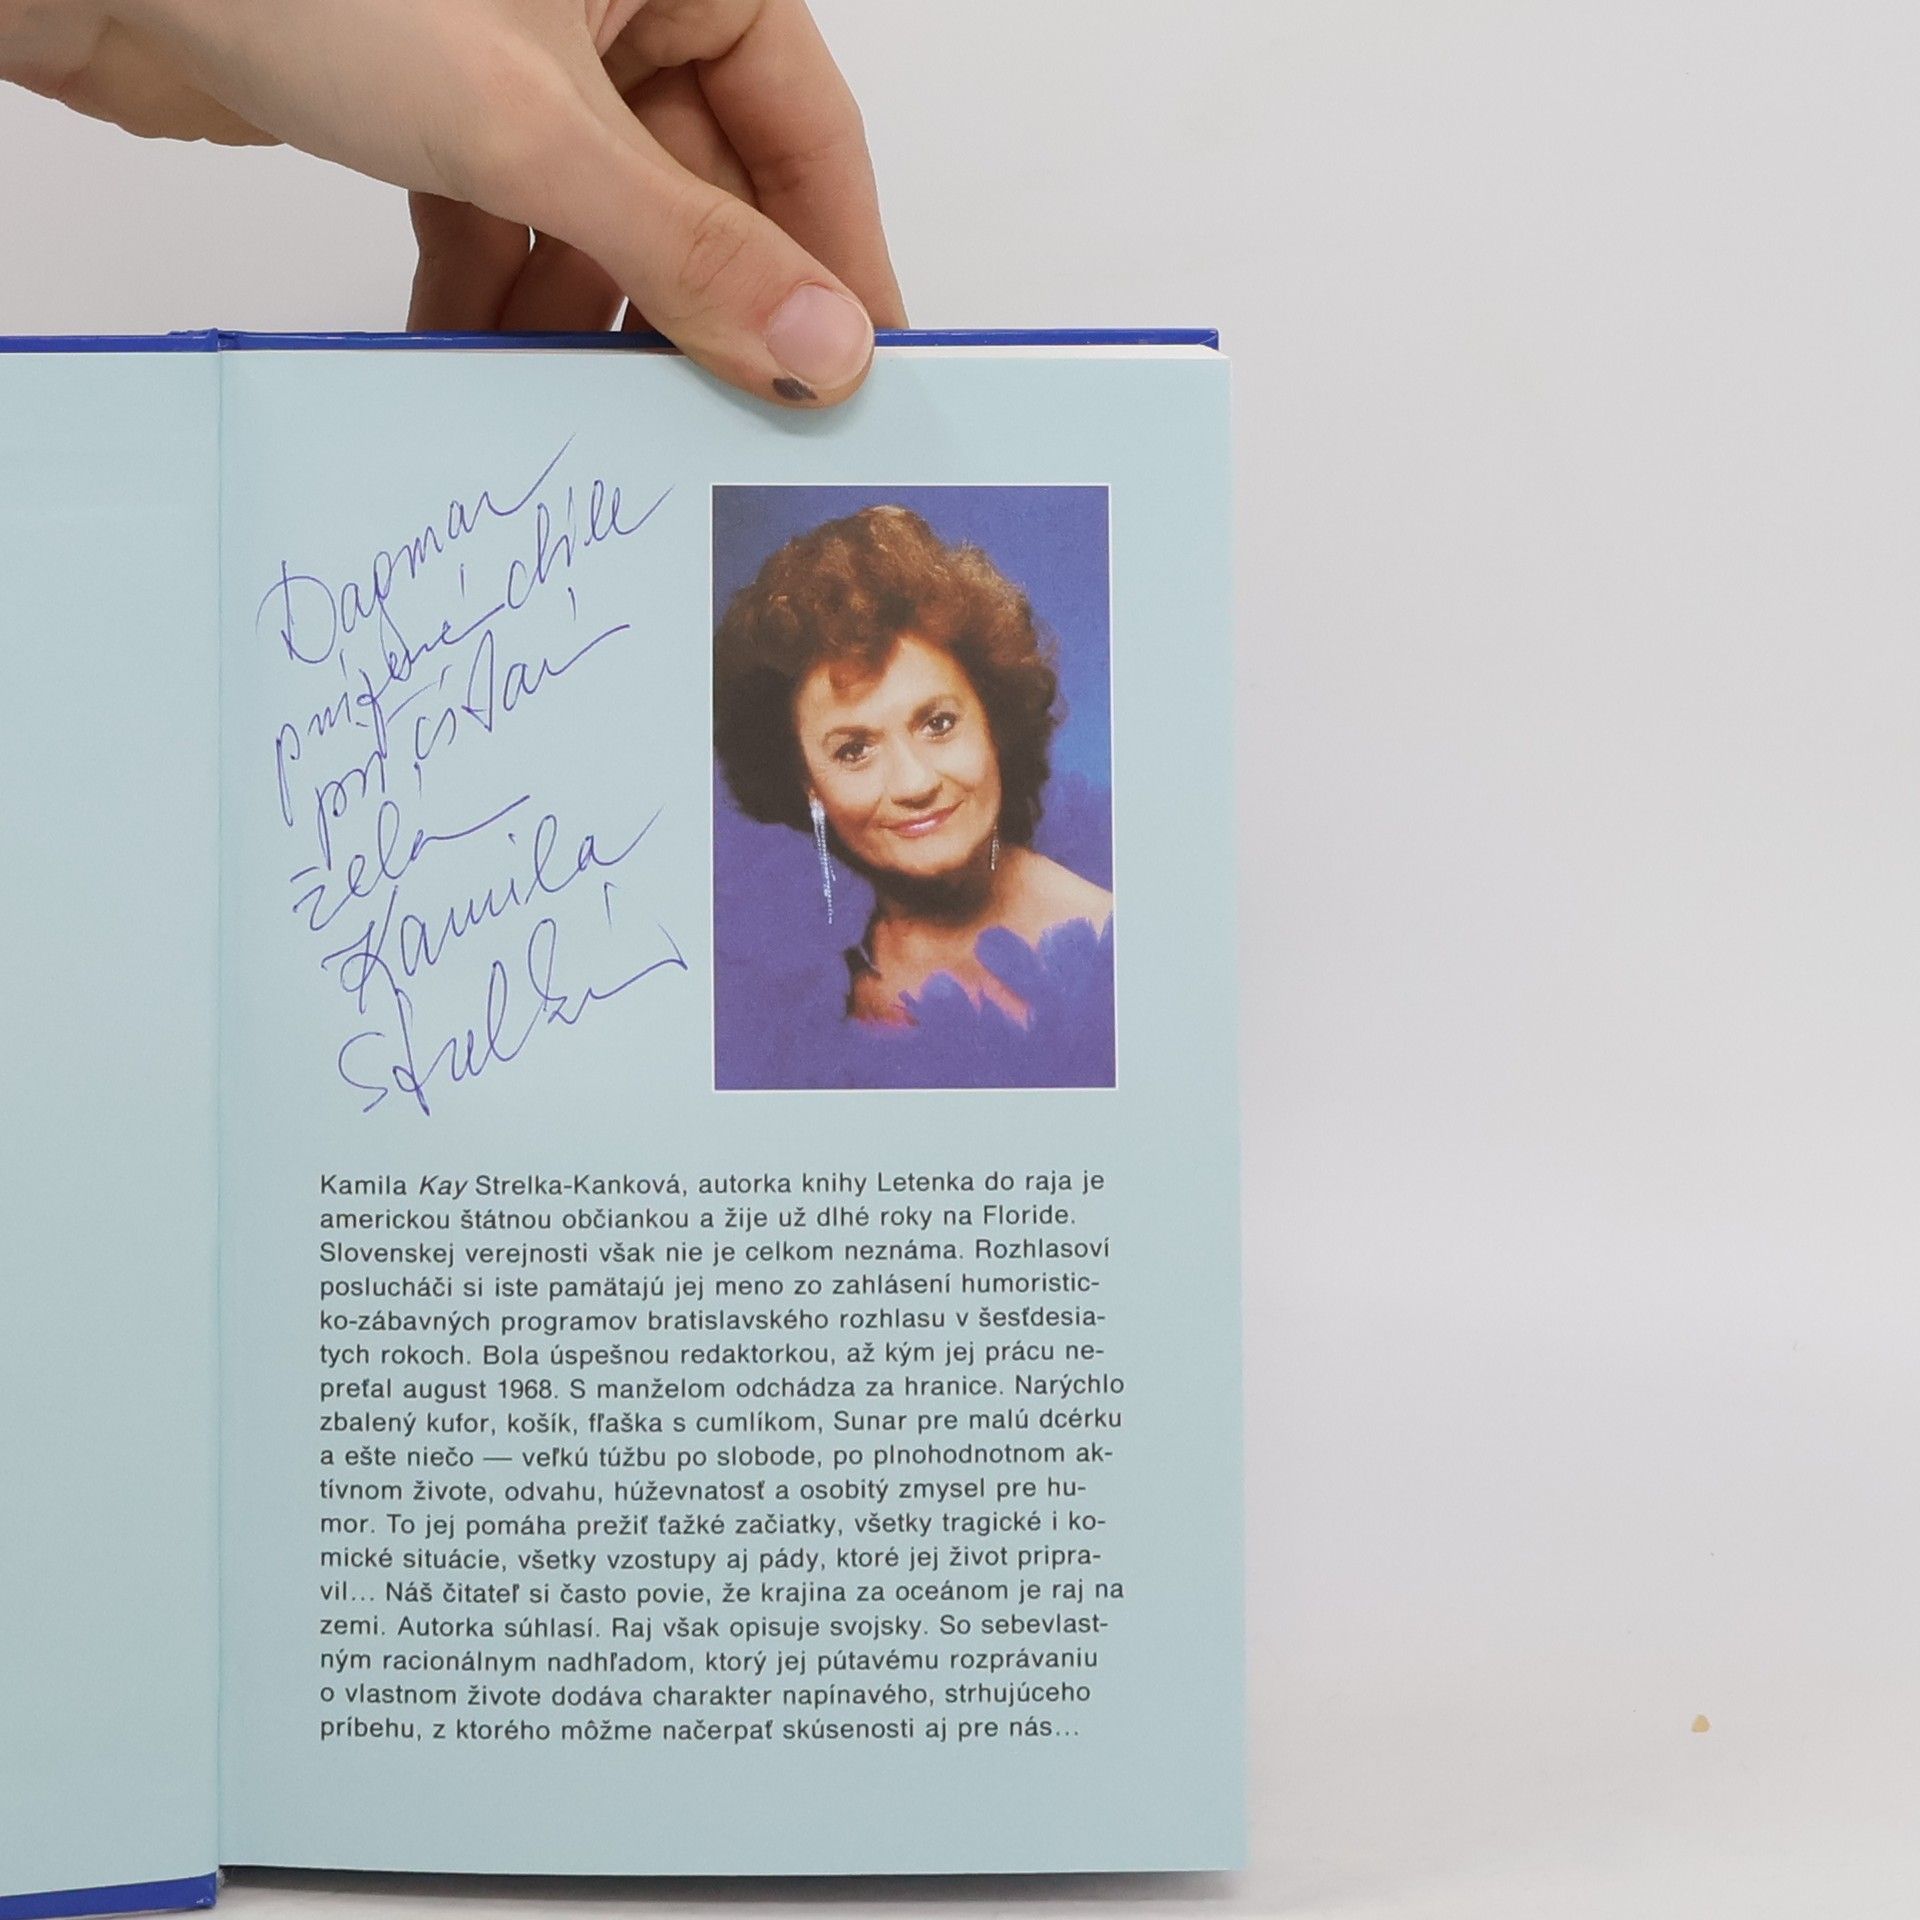 Dagmar
príjemné chvíle
pri čítaní
želá
Kamila
Kamila Kay Strelka-Kanková, autorka knihy Letenka do raja je
americkou štátnou občiankou a žije už dlhé roky na Floride.
Slovenskej verejnosti však nie je celkom neznáma. Rozhlasoví
poslucháči si iste pamätajú jej meno zo zahlásení humoristic-
ko-zábavných programov bratislavského rozhlasu v šesťdesia-
tych rokoch. Bola úspešnou redaktorkou, až kým jej prácu ne-
preťal august 1968. S manželom odchádza za hranice. Narýchlo
zbalený kufor, košík, fľaška s cumlíkom, Sunar pre malú dcérku
a ešte niečo — veľkú túžbu po slobode, po plnohodnotnom ak-
tívnom živote, odvahu, húževnatosť a osobitý zmysel pre hu-
mor. To jej pomáha prežiť ťažké začiatky, všetky tragické i ko-
mické situácie, všetky vzostupy aj pády, ktoré jej život pripra-
vil... Náš čitateľ si často povie, že krajina za oceánom je raj na
zemi. Autorka súhlasí. Raj však opisuje svojsky. So sebevlast-
ným racionálnym nadhľadom, ktorý jej pútavému rozprávaniu
o vlastnom živote dodáva charakter napínavého, strhujúceho
príbehu, z ktorého môžme načerpať skúsenosti aj pre nás...